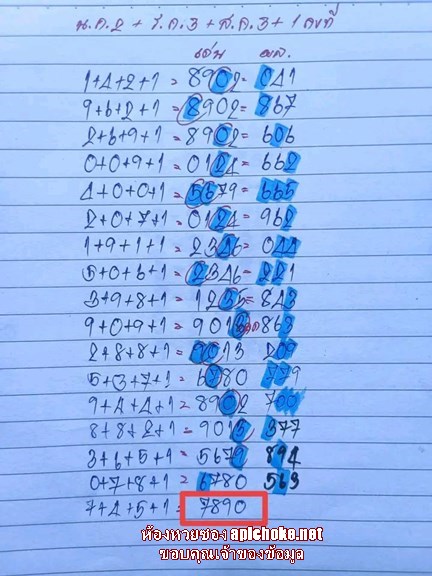 น.ค.2 + ร.ค.3 + ส.ค.3 + 1 คงที่
เด่น ผล.
1+4+2+1 = 8902 = 041
9+6+2+1 = 8902 = 867
2+6+9+1 = 8902 = 606
0+0+9+1 = 0124 = 662
4+0+0+1 = 5679 = 665
2+0+7+1 = 0124 = 962
1+9+1+1 = 2346 = 044
5+0+6+1 = 2346 = 221
3+9+8+1 = 1235 = 843
9+0+9+1 = 9013 863
2+8+8+1 = 9013 209
5+3+7+1 = 6780 779
9+4+4+1 = 8902 700
8+8+2+1 = 9013, 377
3+6+5+1 = 5679 894
0+7+8+1 = 6780 563
7+4+5+1 = 7890
ห้องหวยซอง apichoke.net
ขอบคุณเจ้าของข้อมูล